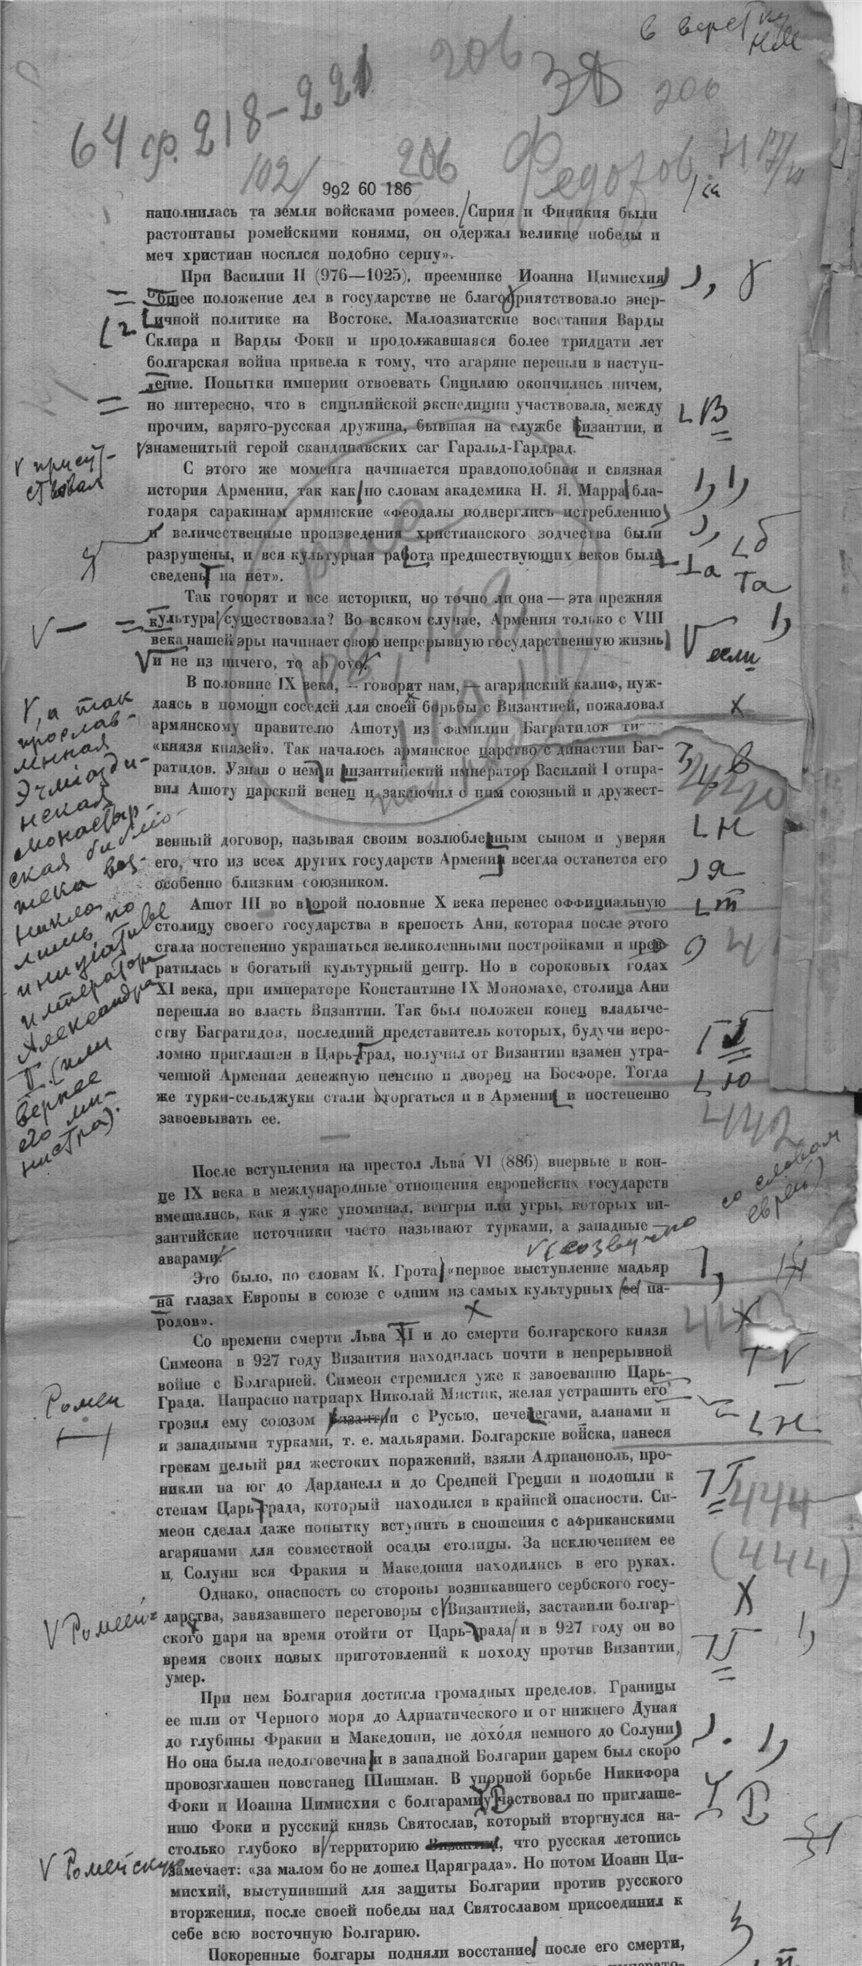 в верстку
206
64 ф. 218-221
206
102/
206
Федотов
992 60 186
наполнилась та земля войсками ромеев. Сирия и Финикия были
растоптаны ромейскими конями, он одержал великие победы и
меч христиан носился подобно серпу».
При Василии II (976—1025), преемнике Иоанна Цимисхия
общее положение дел в государстве не благоприятствовало энер-
ичной политике на Востоке. Малоазиатские восстания Варды
Склира и Варды Фоки и продолжавшаяся более тридцати лет
болгарская война привела к тому, что агаряне перешли в наступ-
ление. Попытки империи отвоевать Сицилию окончились ничем,
но интересно, что в сицилийской экспедиции участвовала, между
прочим, варяго-русская дружина, бывшая на службе Византии, и
знаменитый герой скандинавских саг Гаральд-Гардрад.
V присут-
ствовал
С этого же момента начинается правдоподобная и связная
история Армении, так как по словам академика Н. Я. Марра бла-
годаря саракинам армянские «феодалы подверглись истреблению
и величественные произведения христианского зодчества были
разрушены, и вся культурная работа предшествующих веков была
сведена на нет».
Так говорят и все историки, но точно ли она — эта прежняя
культура существовала? Во всяком случае, Армения только с VIII
века нашей эры начинает свою непрерывную государственную жизнь
V если
и не из ничего, то ab ovo.
В половине IX века, — говорят нам, — агарянский калиф, нуж-
даясь в помощи соседей для своей борьбы с Византией, пожаловал
армянскому правителю Ашоту из фамилии Багратидов
«князя князей». Так началось армянское царство с династии Баг-
ратидов. Узнав о нем и византийский император Василий I отпра-
вил Ашоту царский венец и заключил с ним союзный и дружест-
венный договор, называя своим возлюбленным сыном и уверяя
его, что из всех других государств Армения всегда останется его
особенно близким союзником.
V, а так
прослав-
ленная
Эчмиадзи-
нская
монастыр-
ская библио-
тека воз-
никла
лишь по
инициативе
императора
Александра
I (или
вернее
его ми-
нистра).
Ашот III во второй половине X века перенес оффициальную
столицу своего государства в крепость Ани, которая после этого
стала постепенно украшаться великолепными постройками и прев-
ратилась в богатый культурный центр. Но в сороковых годах
XI века, при императоре Константине IX Мономахе, столица Ани
перешла во власть Византии. Так был положен конец владыче-
ству Багратидов, последний представитель которых, будучи веро-
ломно приглашен в Царь-Град, получил от Византии взамен утра-
ченной Армении денежную пенсию и дворец на Босфоре. Тогда
же турки-сельджуки стали вторгаться и в Армению и постепенно
завоевывать ее.
442
После вступления на престол Льва VI (886) впервые в кон-
це IX века в международные отношения европейских государств
вмешались, как я уже упоминал, венгры или угры, которых ви-
зантийские источники часто называют турками, а западные —
аварами.
V (созвучно со словом еврей)
Это было, по словам К. Грота, «первое выступление мадьяр
на глазах Европы в союзе с одним из самых культурных ее на-
родов».
Со времени смерти Льва XI и до смерти болгарского князя
Симеона в 927 году Византия находилась почти в непрерывной
войне с Болгарией. Симеон стремился уже к завоеванию Царь-
Града. Напрасно патриарх Николай Мистик, желая устрашить его
Ромеи
грозил ему союзом Византии с Русью, печенегами, аланами и
и западными турками, т. е. мадьярами. Болгарские войска, нанеся
грекам целый ряд жестоких поражений, взяли Адрианополь, про-
никли на юг до Дарданелл и до Средней Греции и подошли к
стенам Царь-града, который находился в крайней опасности. Си-
444
меон сделал даже попытку вступить в сношения с африканскими
агарянами для совместной осады столицы. За исключением ее
(444)
и Солуни вся Фракия и Македония находились в его руках.
Однако, опасность со стороны возникавшего сербского госу-
V Ромей-
дарства, завязавшего переговоры с Византией, заставили болгар-
ского царя на время отойти от Царь-града и в 927 году он во
время своих новых приготовлений к походу против Византии,
умер.
При нем Болгария достигла громадных пределов. Границы
ее шли от Черного моря до Адриатического и от нижнего Дуная
до глубины Фракии и Македонии, не доходя немного до Солуни
Но она была недолговечна и в западной Болгарии царем был скоро
провозглашен повстанец Шишман. В упорной борьбе Никифора
Фоки и Иоанна Цимисхия с болгарами участвовал по приглаше-
нию Фоки и русский князь Святослав, который вторгнулся на-
столько глубоко в территорию Византии, что русская летопись
V Ромейскую
замечает: «за малом бо не дошел Царяграда». Но потом Иоанн Ци-
мисхий, выступивший для защиты Болгарии против русского
вторжения, после своей победы над Святославом присоединил к
себе всю восточную Болгарию.
Покоренные болгары подняли восстание после его смерти,